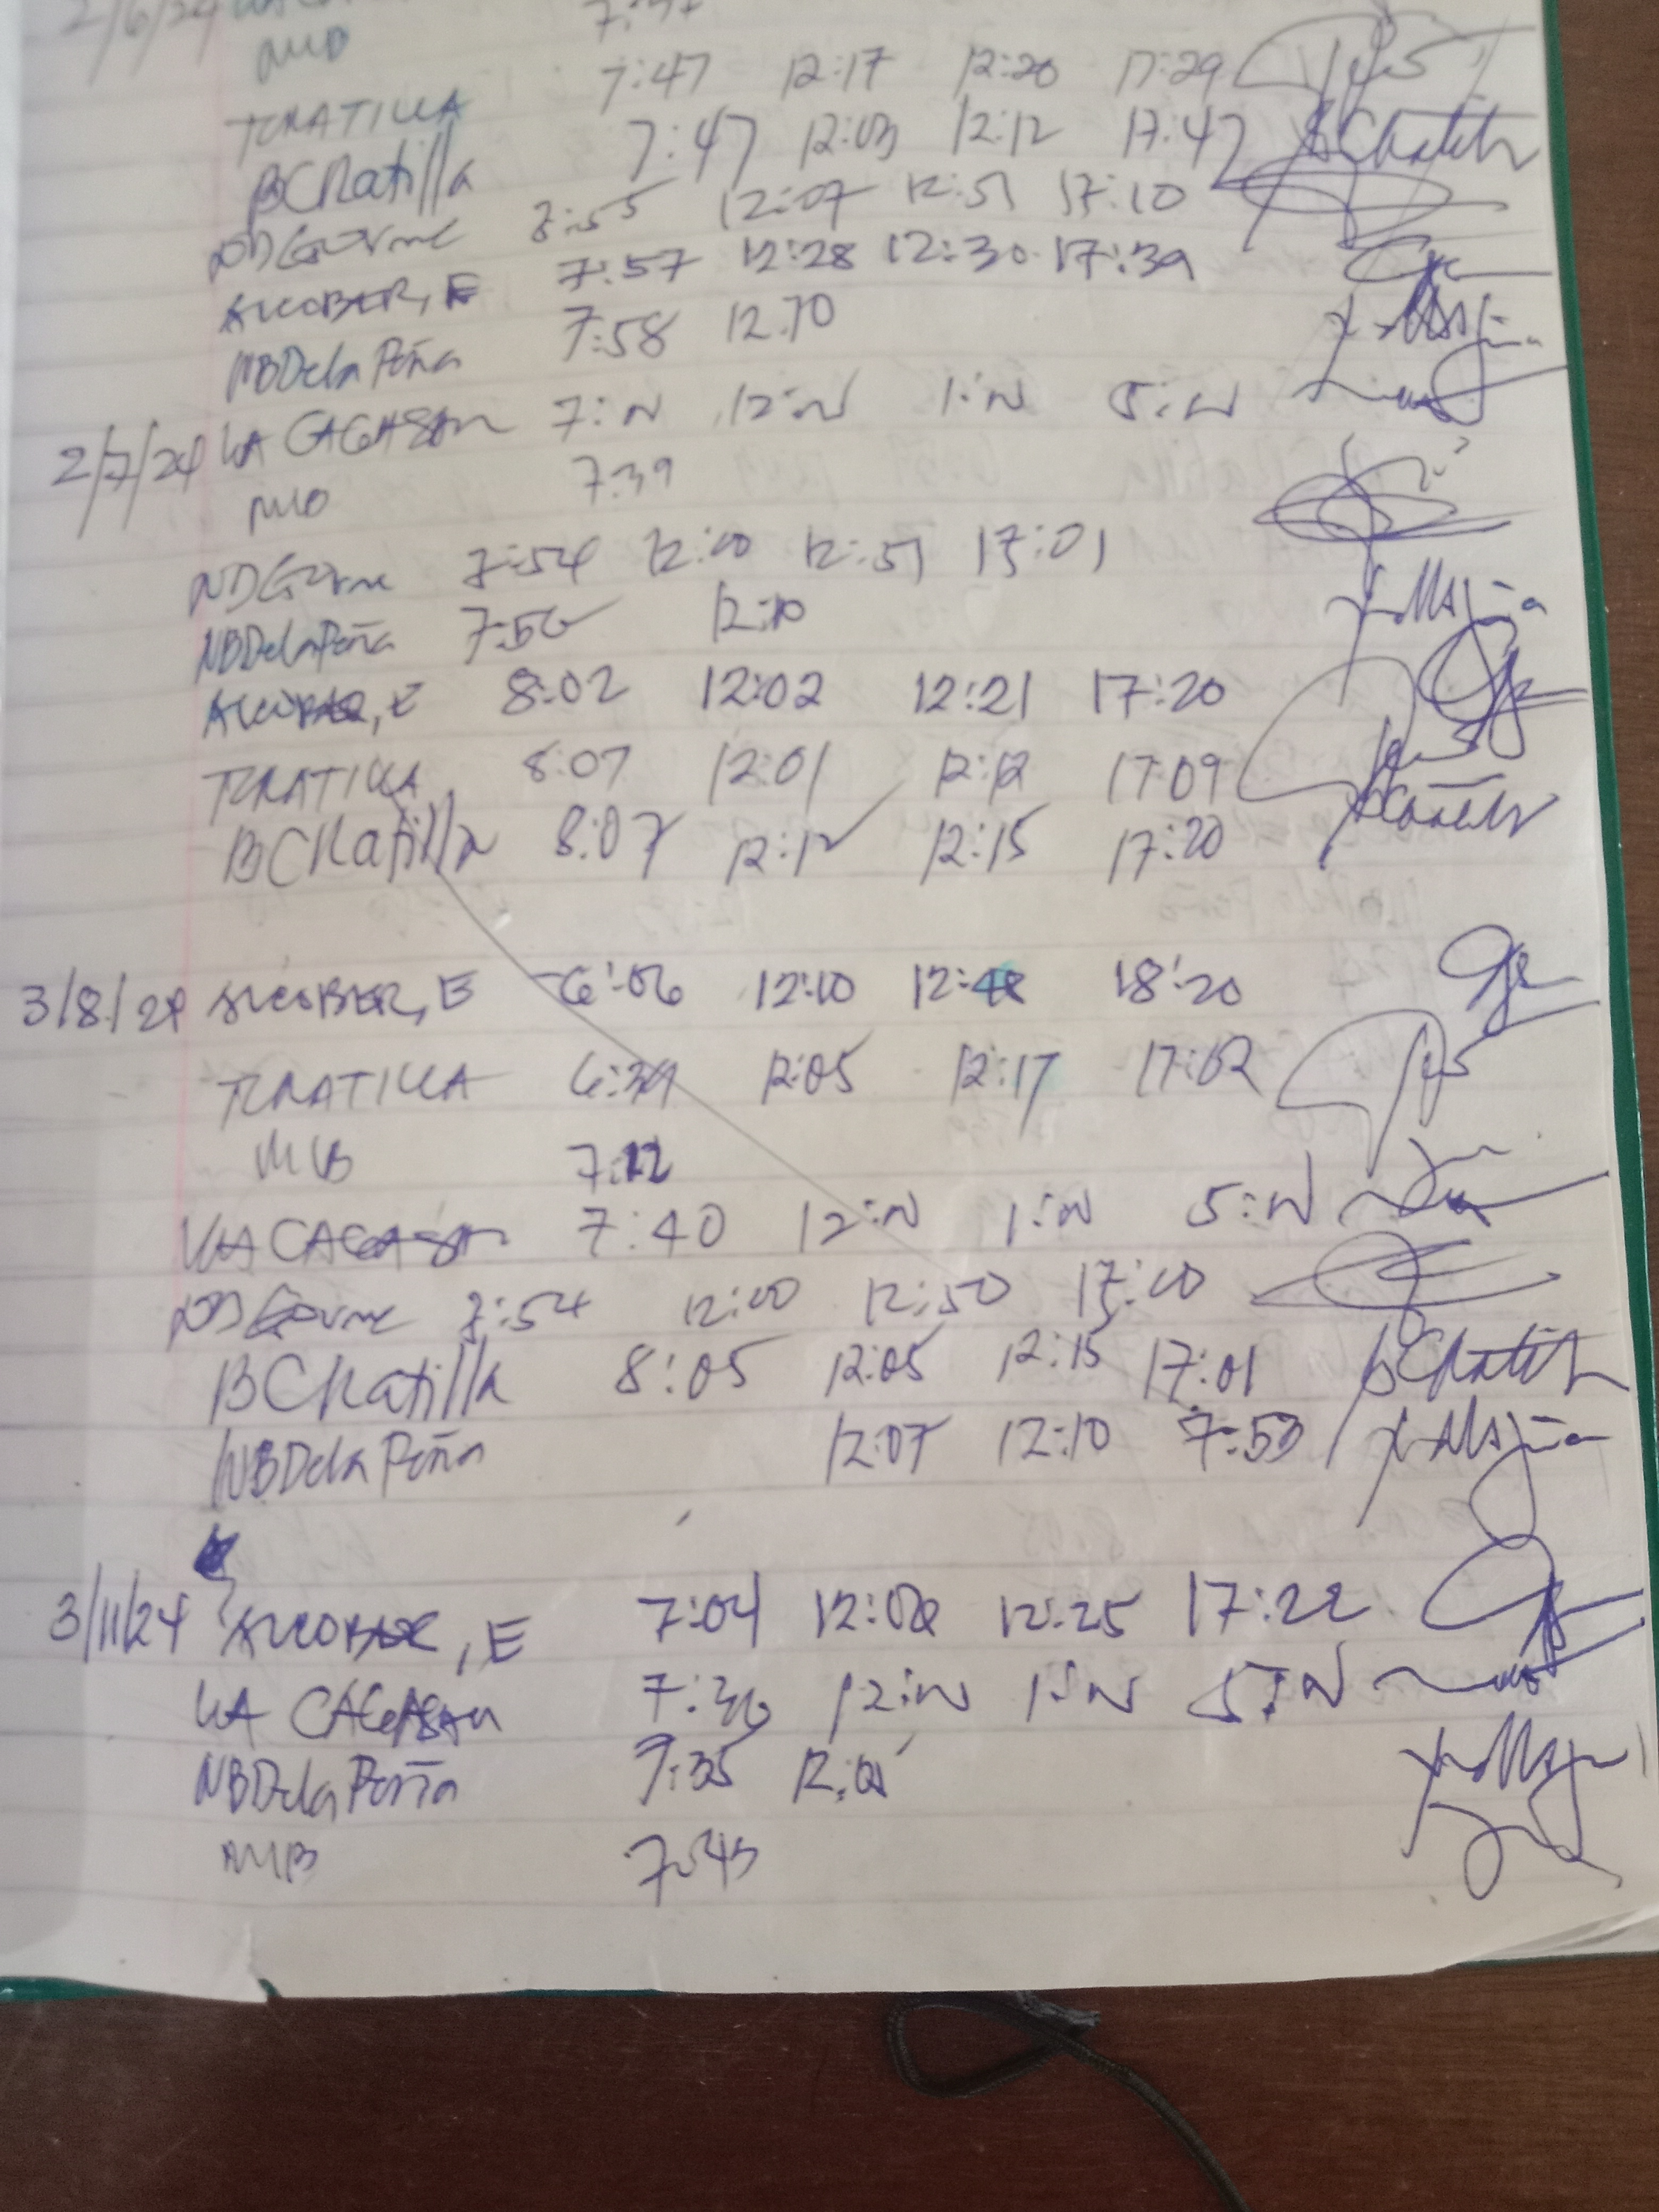 2/6/24
TCRATILLA 7:47 12:17 12:20 17:29
BCRatilla 7:47 12:03 12:12 17:47
7:55 12:07 12:51 17:10
ALCOBER, E 7:57 12:28 12:30 17:39
NBDela Peña 7:58 12:10
2/7/24 LA CAGASAN 7:N 12:N 1:N 5:N
7:39
7:54 12:00 12:51 17:01
NBDelaPeña 7:56 12:10
ALCOBER, E 8:02 12:02 12:21 17:20
TCRATILLA 8:07 12:01 12:12 17:09
BCRatilla 8:07 12:12 12:15 17:20
3/8/24 ALCOBER, E 6:06 12:10 18:20
TCRATILLA 6:39 12:05 12:17 17:02
MB 7:12
LA CAGASAN 7:40 12:N 1:N 5:N
7:54 12:00 12:50 17:00
BCRatilla 8:05 12:05 12:15 17:01
NBDela Peña 12:07 12:10 7:53
3/11/24 ALCOBER, E 7:04 12:02 12:25 17:22
LA CAGASAN 7:30 12:N 1:N 5:N
NBDela Peña 7:35
MB 7:43